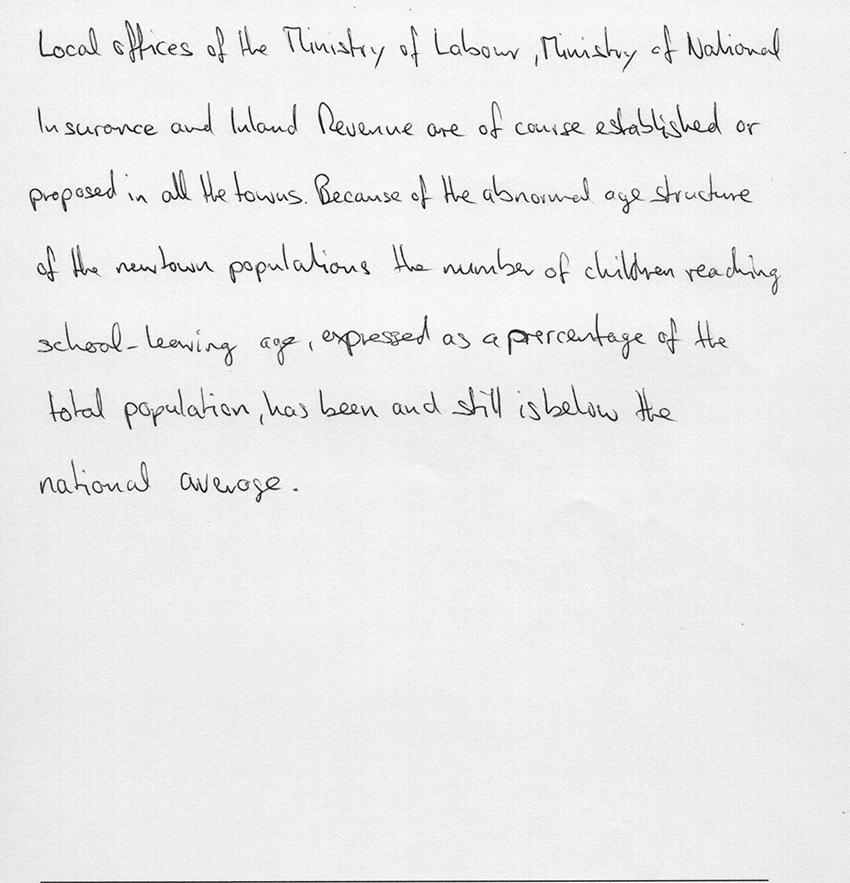 Local offices of the Ministry of Labour, Ministry of National
Insurance and Inland Revenue are of course established or
proposed in all the towns. Because of the abnormal age structure
of the newtown populations the number of children reaching
school-leaving age, expressed as a prercentage of the
total population, has been and still is below the
national average.